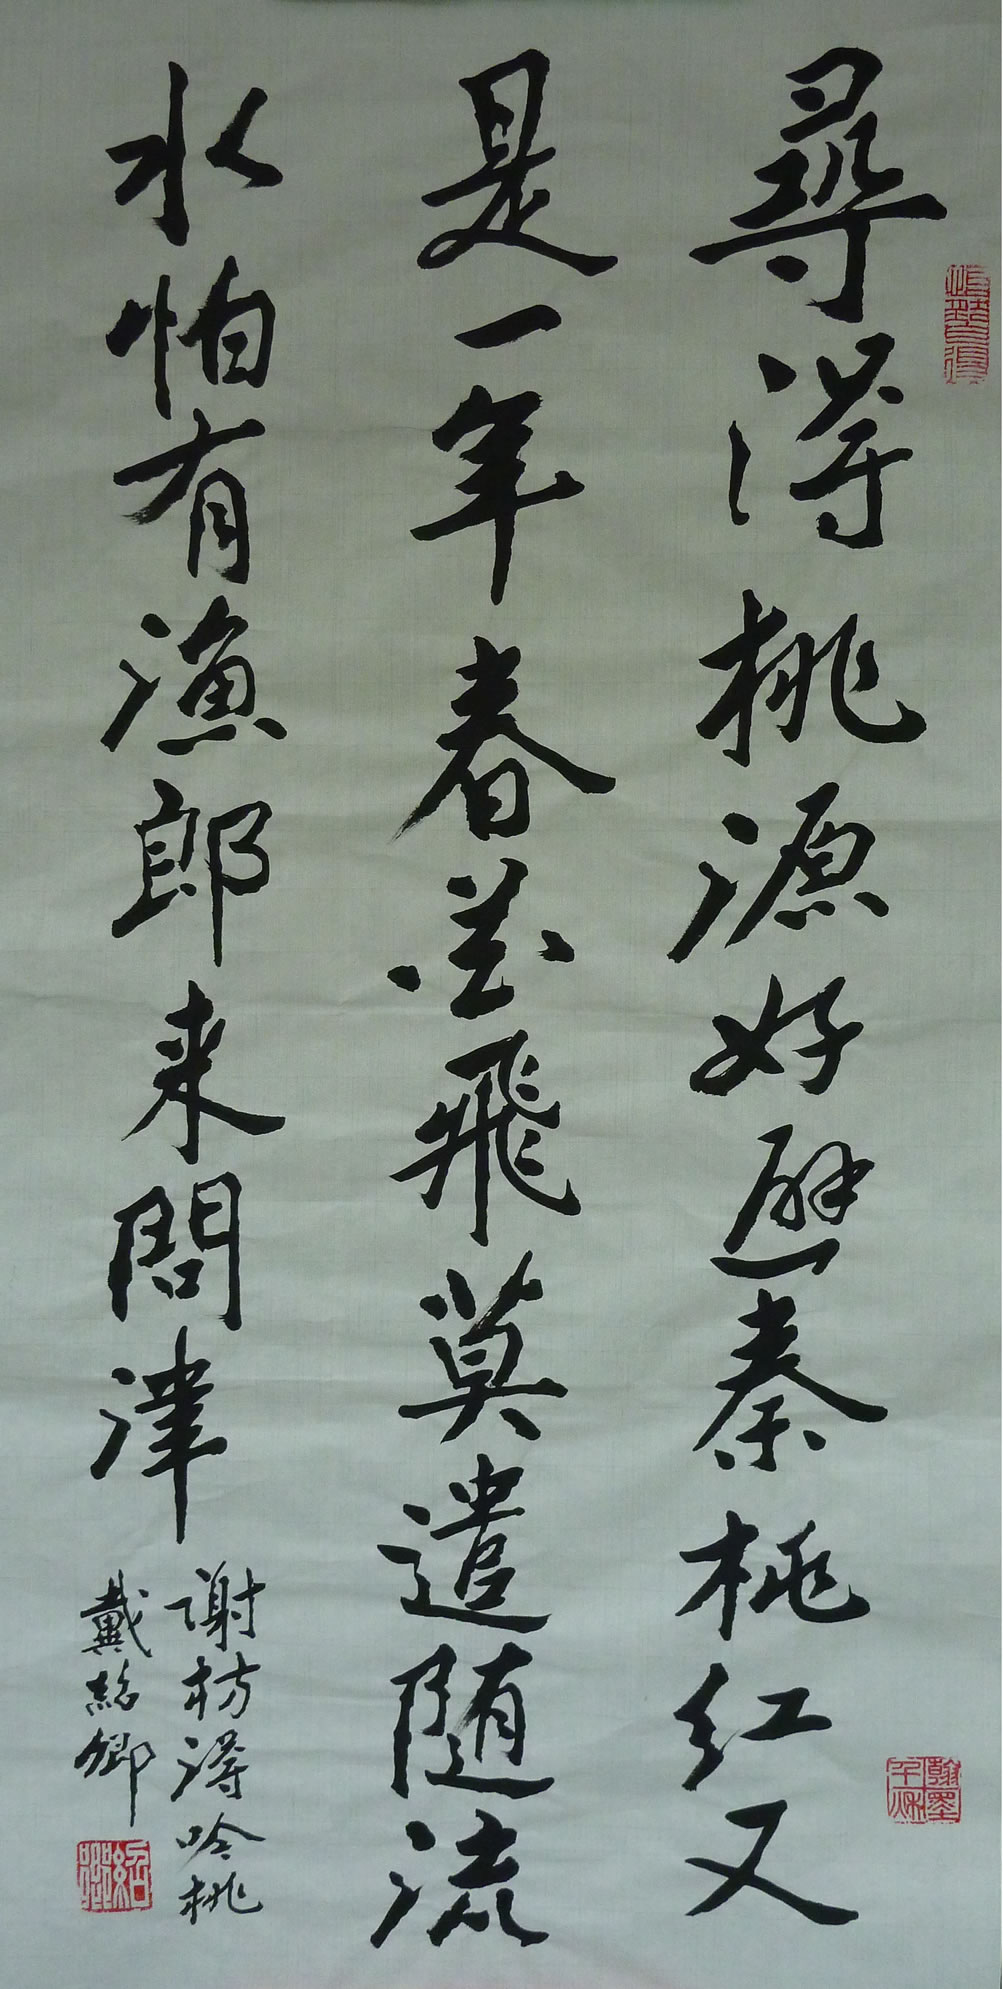 尋得桃源好避秦桃红又
是一年春花飛莫遣随流
水怕有漁郎来問津
谢枋得吟桃
戴紹卿
翰墨千秋
紹卿